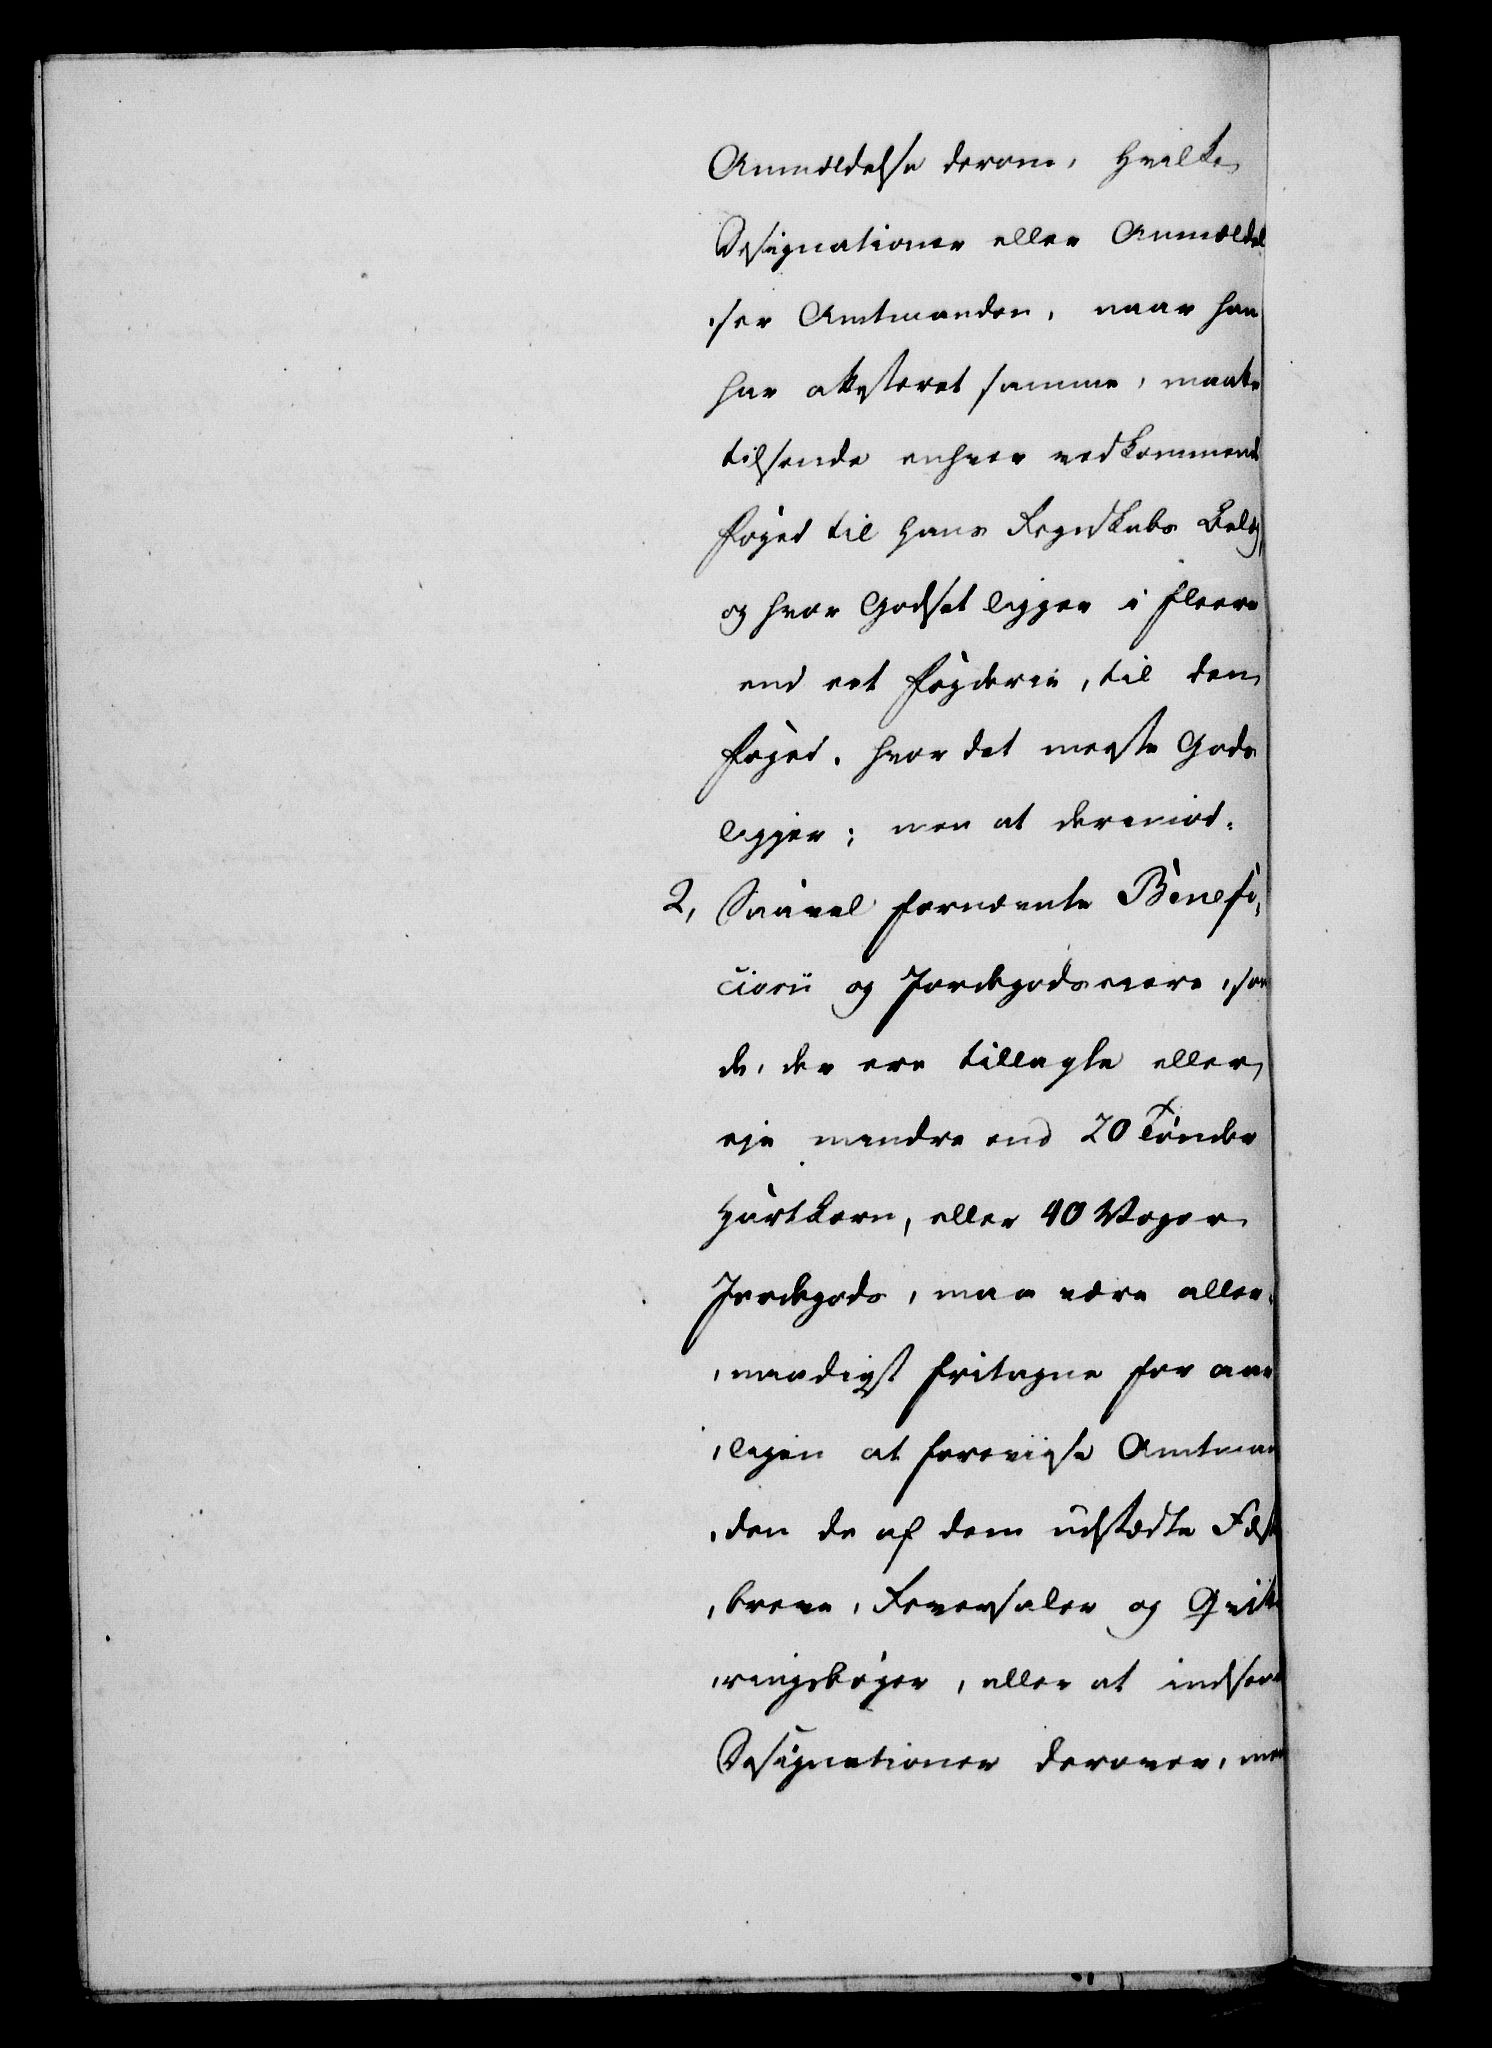 Anmældelse derom, hvilke
Designationer eller Anmældel
ser Amtmanden, naar han
har attesteret samme, maatte
tilsende enhver vedkommende
Foged til hans Regnskabs Belæg,
og hvor Godset ligger i fleere
end eet Fogderie, til den
Foged, hvor det meeste Gods
ligger; men at derimod.
2, Saavel fornævnte Benefi,
ciarii og Jordegodseiere, som
de, der ere tillagte eller
eje mindre end 20 Tønder
Hartkorn, eller 40 Voger
Jordegods, maa være aller,
,naadigst fritagne for aar
,ligen at foreviise Amtman
,den de af dem udstædte Fæste
,breve, Reversaler og Qvitte
,ringsbøger, eller at indsende
Designationer derover, men